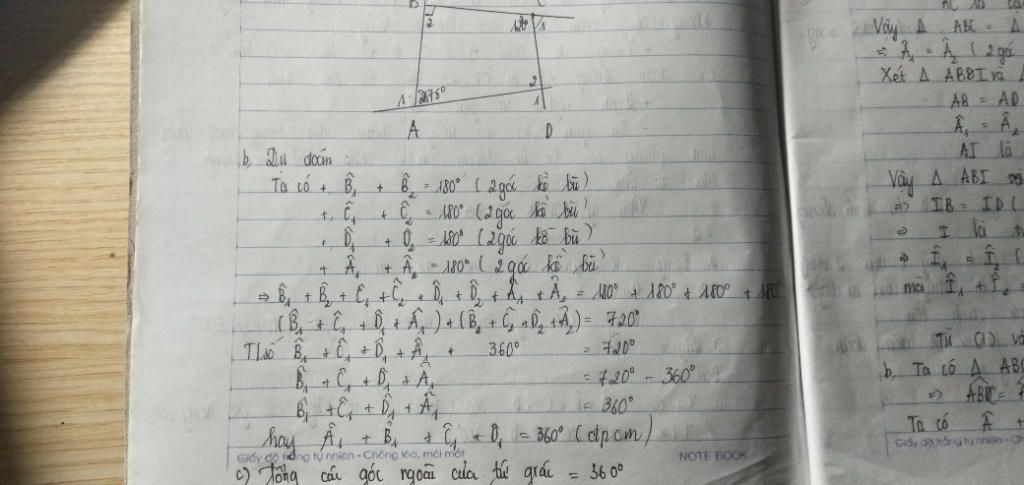 B C
2 120° 1
1 75° 2
1
A D
b, Dự đoán
Ta có +, B̂₁ + B̂₂ = 180° (2 góc kề bù)
+, Ĉ₁ + Ĉ₂ = 180° (2 góc kề bù)
+, D̂₁ + D̂₂ = 180° (2 góc kề bù)
+ Â₁ + Â₂ = 180° (2 góc kề bù)
⇒ B̂₁ + B̂₂ + Ĉ₁ + Ĉ₂ + D̂₁ + D̂₂ + Â₁ + Â₂ = 180° + 180° + 180° + 180°
(B̂₁ + Ĉ₁ + D̂₁ + Â₁) + (B̂₂ + Ĉ₂ + D̂₂ + Â₂) = 720°
Th số B̂₁ + Ĉ₁ + D̂₁ + Â₁ + 360° = 720°
B̂₁ + Ĉ₁ + D̂₁ + Â₁ = 720° - 360°
B̂₁ + Ĉ₁ + D̂₁ + Â₁ = 360°
hay Â₁ + B̂₁ + Ĉ₁ + D̂₁ = 360° (đpcm)
Giấy độ trắng tự nhiên - Chống lóa, mỏi mắt NOTE BOOK
c) Tổng các góc ngoài của tứ giác = 360°
AC là
Vậy Δ ABC = Δ
⇒ Â₁ = Â₂ (2 gó
Xét Δ ABI và Δ
AB = AD
Â₁ = Â₂
AI là
Vậy Δ ABI
⇒ IB = ID (
⇒ I là
⇒ Î₁ = Î₂ (
mà Î₁ + Î₂ =
Từ (1) và
b, Ta có Δ ABC
⇒
Ta có Â +
Giấy độ trắng tự nhiên - Ch